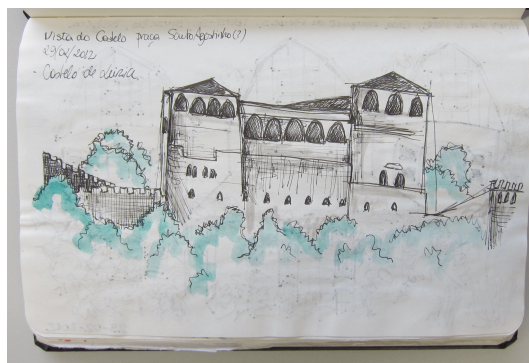 Vista do Castelo praça Santo Agostinho(?)
29/04/2012
- Castelo de Leiria